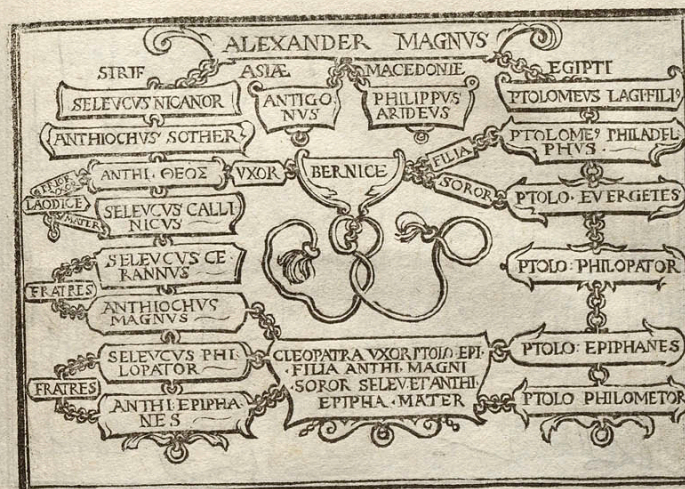 ALEXANDER MAGNVS
SIRIE ASIÆ MACEDONIE EGIPTI
SELEVCVS NICANOR
ANTIGO
NVS
PHILIPPVS
ARIDEVS
PTOLOMEVS LAGI·FILI9
ANTHIOCHVS SOTHER
PTOLOME9 PHILADEL
PHVS
ANTHI · ΘΕΟΣ
VXOR
BERNICE
FILIA
SOROR
LAODICE
MATER
SELEVCVS CALLI
NICVS
PTOLO · EVERGETES
SELEVCVS CE
RANNVS
FRATRES
ANTHIOCHVS
MAGNVS
PTOLO : PHILOPATOR
SELEVCVS PHI
LOPATOR
FRATRES
ANTHI : EPIPHA
NES
CLEOPATRA VXOR PTOLO EPI ·
· FILIA ANTHI · MAGNI
· SOROR SELEV · ET ANTHI
EPIPHA · MATER
PTOLO : EPIPHANES
PTOLO PHILOMETOR